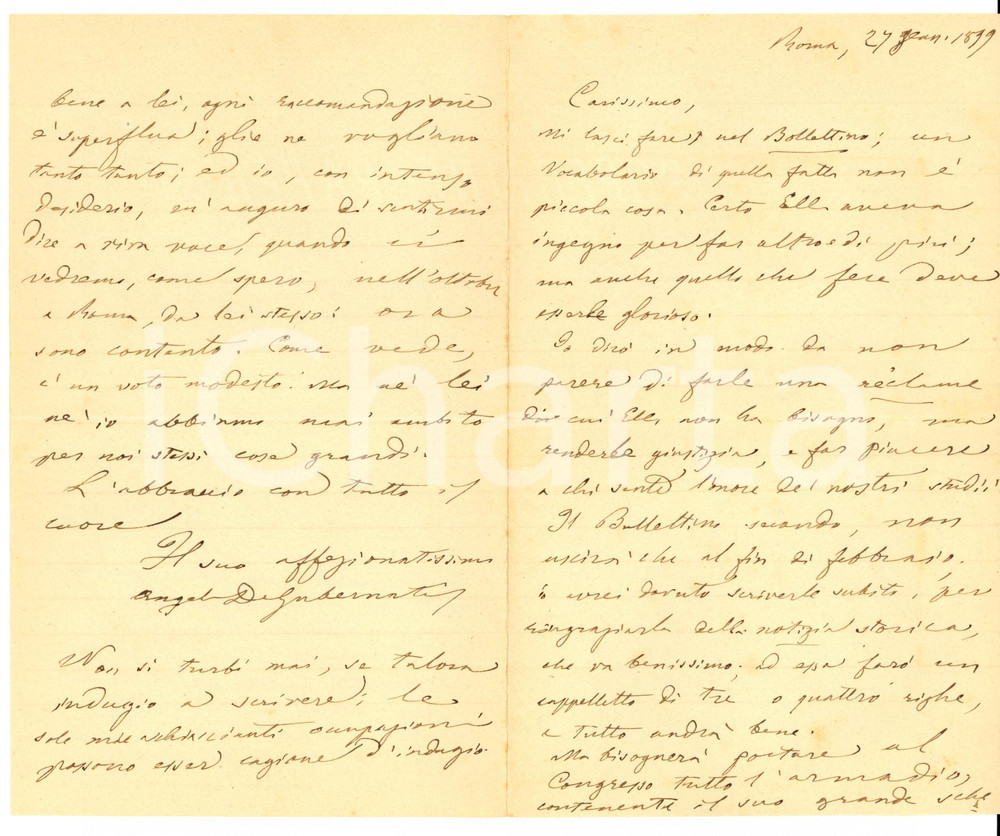 Roma, 27 Gen. 1899
Carissimo,
Mi lasci fare, nel Bollettino; un
Vocabolario di quella fatta non è
piccola cosa. Certo Ella aveva
ingegno per far altro e di più;
ma anche quello che fece deve
esserle glorioso.
Io dirò in modo da non
parere di farle una réclame
di cui Ella non ha bisogno, ma
renderle giustizia, e far piacere
a chi sente l'amore dei nostri studii
Il Bullettino secondo, non
uscirà che al fin di febbraio.
avrei dovuto scriverle subito, per
ringraziarla della notizia storica,
che va benissimo; ad essa farò un
cappelletto di tre o quattro righe,
e tutto andrà bene.
Ma bisognerà portare al
Congresso tutto l'armadio,
contenente il suo grande
bene a lei, ogni raccomandazione
è superflua; glie ne vogliano
tanto tanto; ed io, con intenso
desiderio, m'auguro di sentirmi
dire a viva voce, quando ci
vedremo, come spero, nell'ottobre
a Roma, da lei stesso: ora
sono contento. Come vede,
è un voto modesto. Ma nè lei
nè io abbiamo mai ambito
per noi stessi cose grandi.
L'abbraccio con tutto il
cuore
Il suo affezionatissimo
Angelo De Gubernatis
Non si turbi mai, se talora
indugio a scrivere; le
sole mie schiaccianti occupazioni
possono esser cagione d'indugio.
iCharta